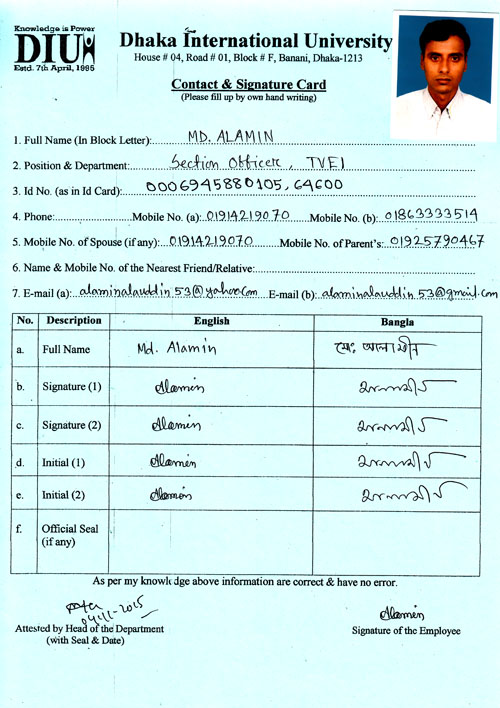 Knowledge is Power
DIU
Estd. 7th April, 1995
Dhaka International University
House # 04, Road # 01, Block # F, Banani, Dhaka-1213
Contact & Signature Card
(Please fill up by own hand writing)
1. Full Name (In Block Letter): MD. ALAMIN
2. Position & Department: Section Officer, TVEI
3. Id No. (as in Id Card): 0006945880105, 64600
4. Phone: Mobile No. (a): 01914219070 Mobile No. (b): 01863333514
5. Mobile No. of Spouse (if any): 01914219070 Mobile No. of Parent's: 01925790467
6. Name & Mobile No. of the Nearest Friend/Relative:
7. E-mail (a): alaminalauddin53@yahoo.com E-mail (b): alaminalauddin53@gmail.com
No. Description English Bangla
a. Full Name Md. Alamin মোঃ আলামীন
b. Signature (1) Alamin
c. Signature (2) Alamin
d. Initial (1) Alamin
e. Initial (2) Alamin
f. Official Seal
(if any)
As per my knowledge above information are correct & have no error.
Alamin
Attested by Head of the Department
(with Seal & Date)
Signature of the Employee